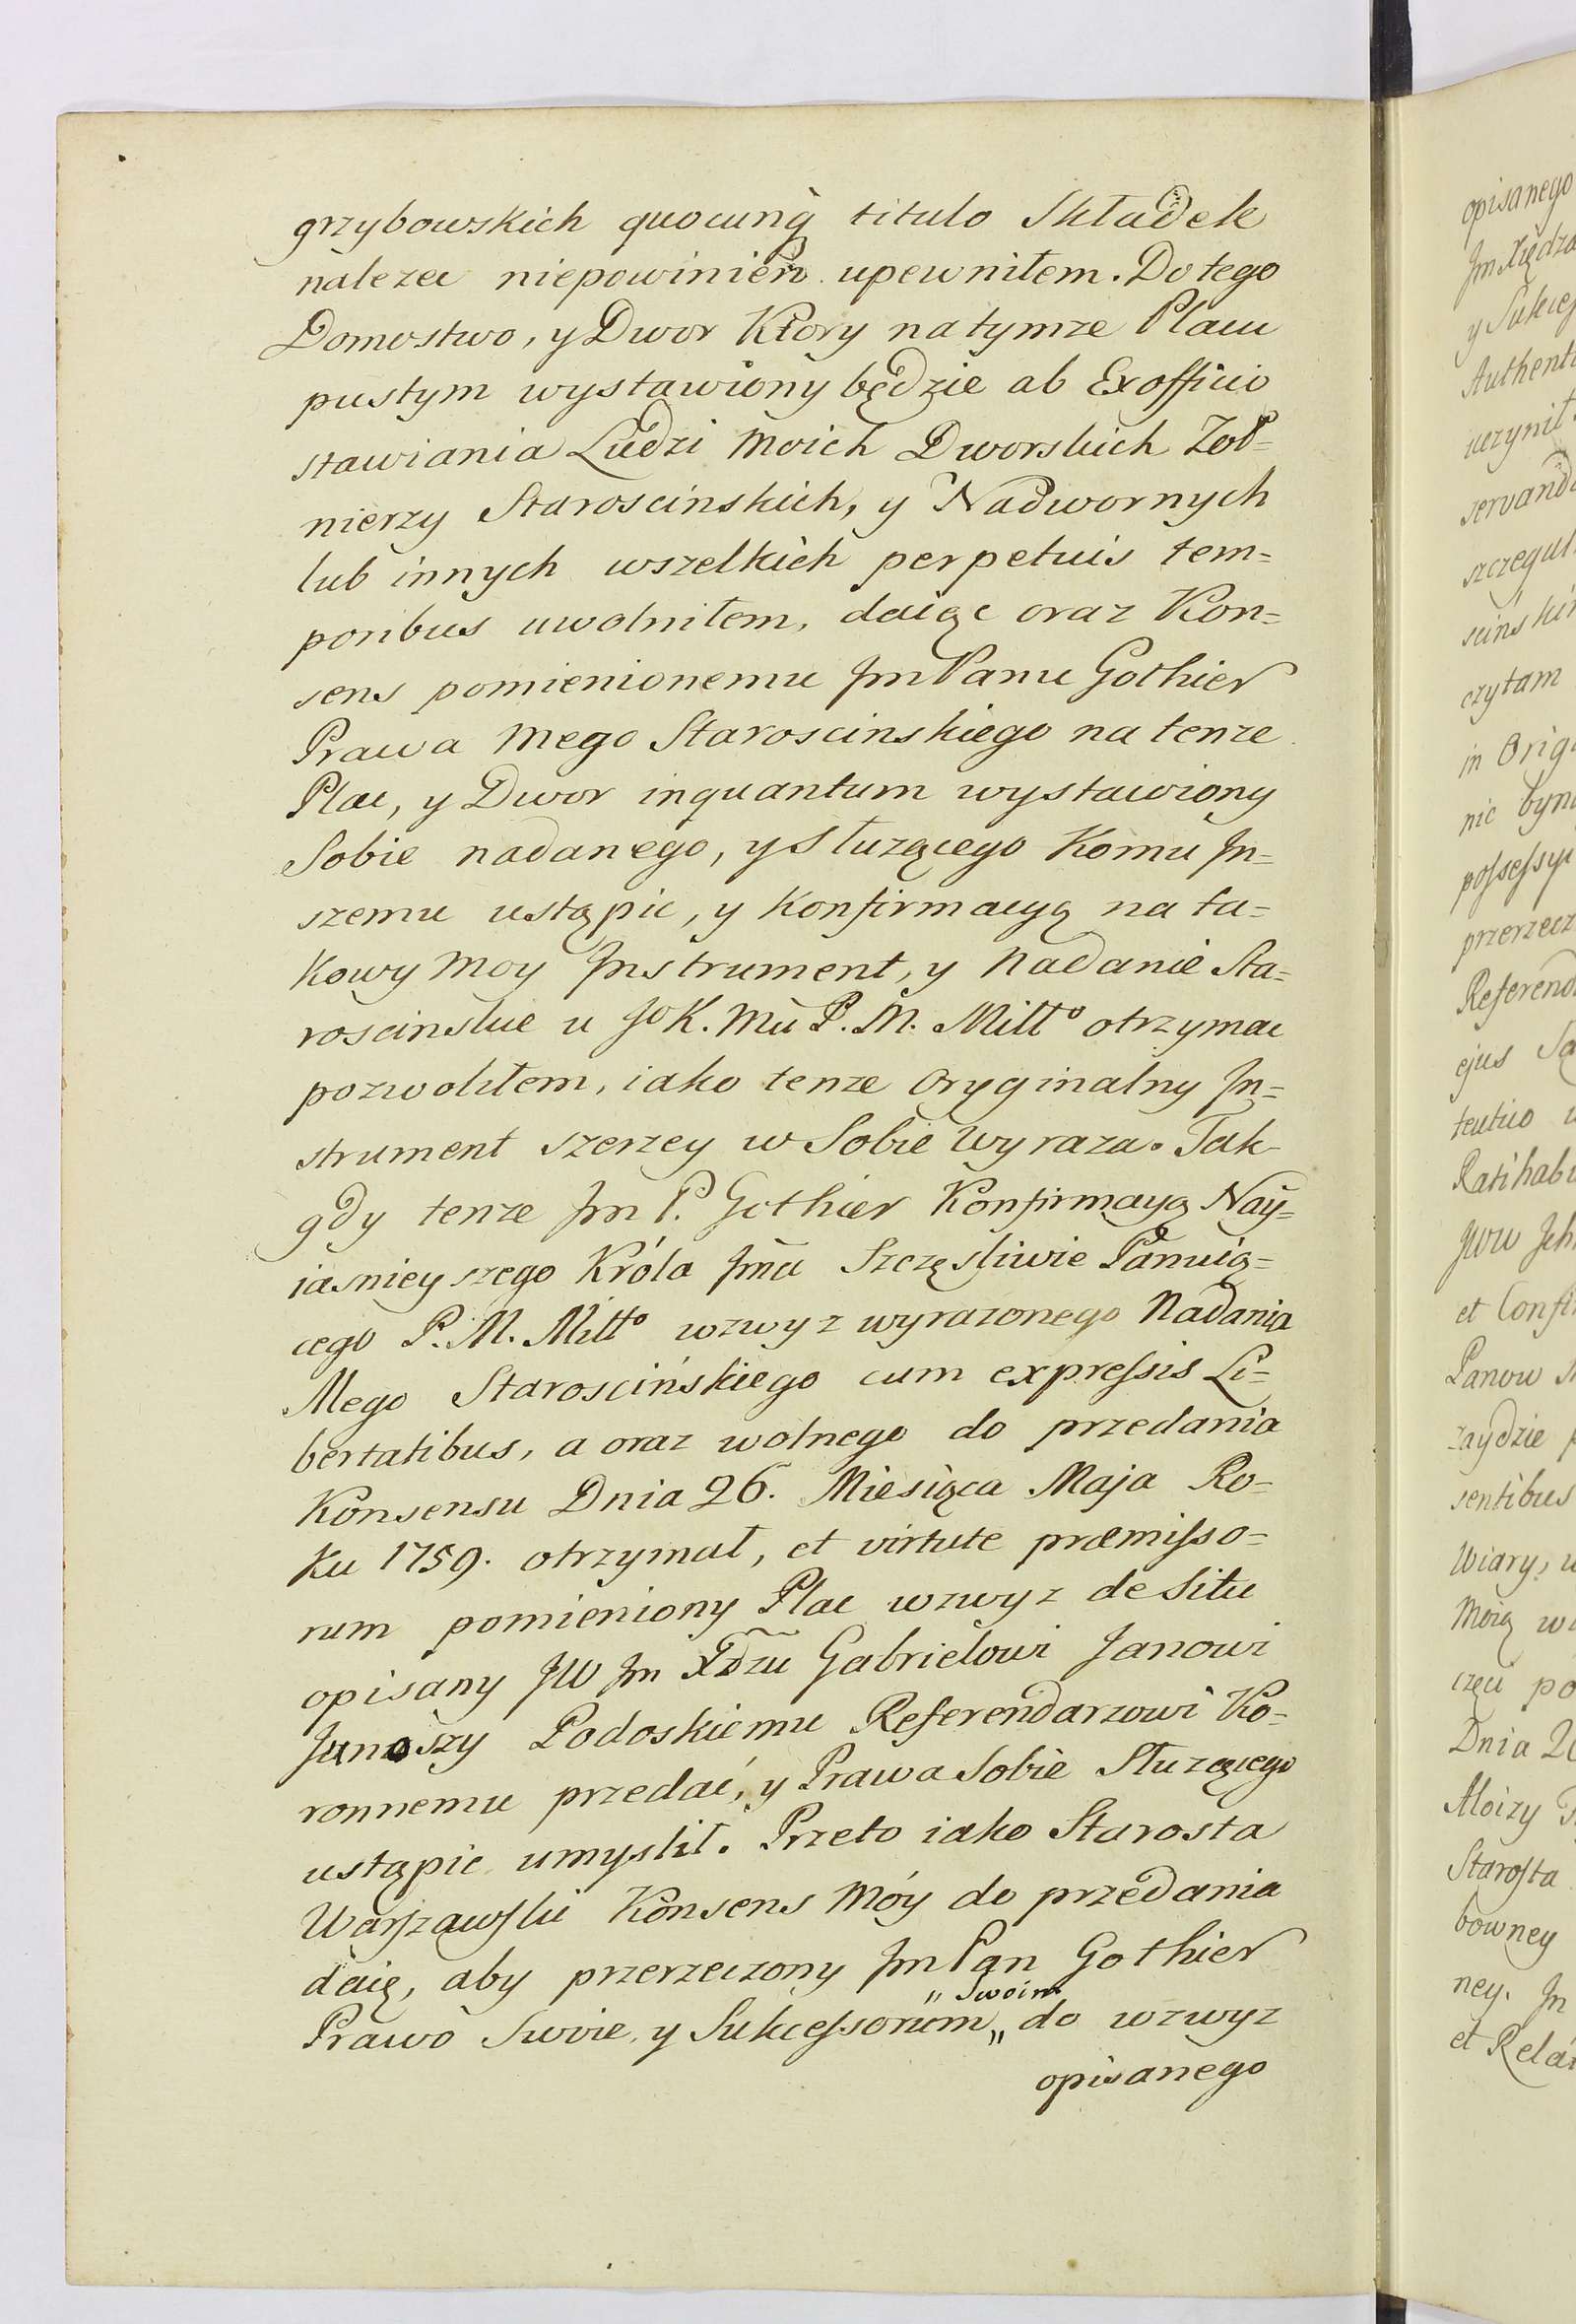 grzybowskich quocunq̨ titulo Składek
nalezec niepowinien upewniłem. Do tego
Domostwo, y Dwor Ktory na tymze Placu
pustym wystawiony będzie ab Exofficio
stawiania Ludzi Moich Dworskich Zoł=
nierzy Staroscinskich, y Nadwornych
lub innych wszelkich perpetuis tem=
poribus uwolniłem, daiąc oraz Kon=
sens pomienionemu Jm Panu Gothier
Prawa Mego Staroscinskiego na tenze
Plac, y Dwor inquantum wystawiony
Sobie nadanego, y Służącego Komu Jn=
szemu ustąpic, y Konfirmacyą na ta=
Kowy Moy Jnstrument, y Nadanie Sta=
roscinskie u Jo K. Mu P. M. Miłłº otrzymac
pozwoliłem, iako tenze Oryginalny Jn=
strument szerzey w Sobie wyraza. Tak
gdy tenze Jm P. Gothier Konfirmacyą Nay=
iasnieyszego Króla Jm̃ci Szczęsliwie Panuią=
cego P. M. Miłłº wzwyz wyrazonego Nadania
Mego Staroscińskiego cum expreſsis Li=
bertatibus, a oraz wolnego do przedania
Konsensu Dnia 26. Miesiąca Maja Ro=
Ku 1759. otrzymał, et virtute præmiſso=
rum pomieniony Plac wzwyz de Situ
opisany JW Jm Xdzu Gabrielowi Janowi
Junoszy Podoskiemu Referendarzowi Ko=
ronnemu przedać, y Prawa Sobie Służącego
ustąpic umyslił. Przeto iako Starosta
Warſzawſki Konsens Móy do przedania
daię, aby przerzeczony Jm Pan Gothier
Prawo Swoie y Sukceſsorum „ Swoim „ do wzwyz
opisanego
opisanego
Jm Xiędza
y Sukceſ
Authenti
uczynił.
servand
szczegul
scińskie
czytam
in Orig
nic byn
poſseſsyi
przerzecz
Referend
ejus Sa
Ratihab
et Confi
Panow
zaydzie
sentibus
Wiary, w
Moią w
Dnia 2
Starosta
bowney
ney. Jn
et Rela